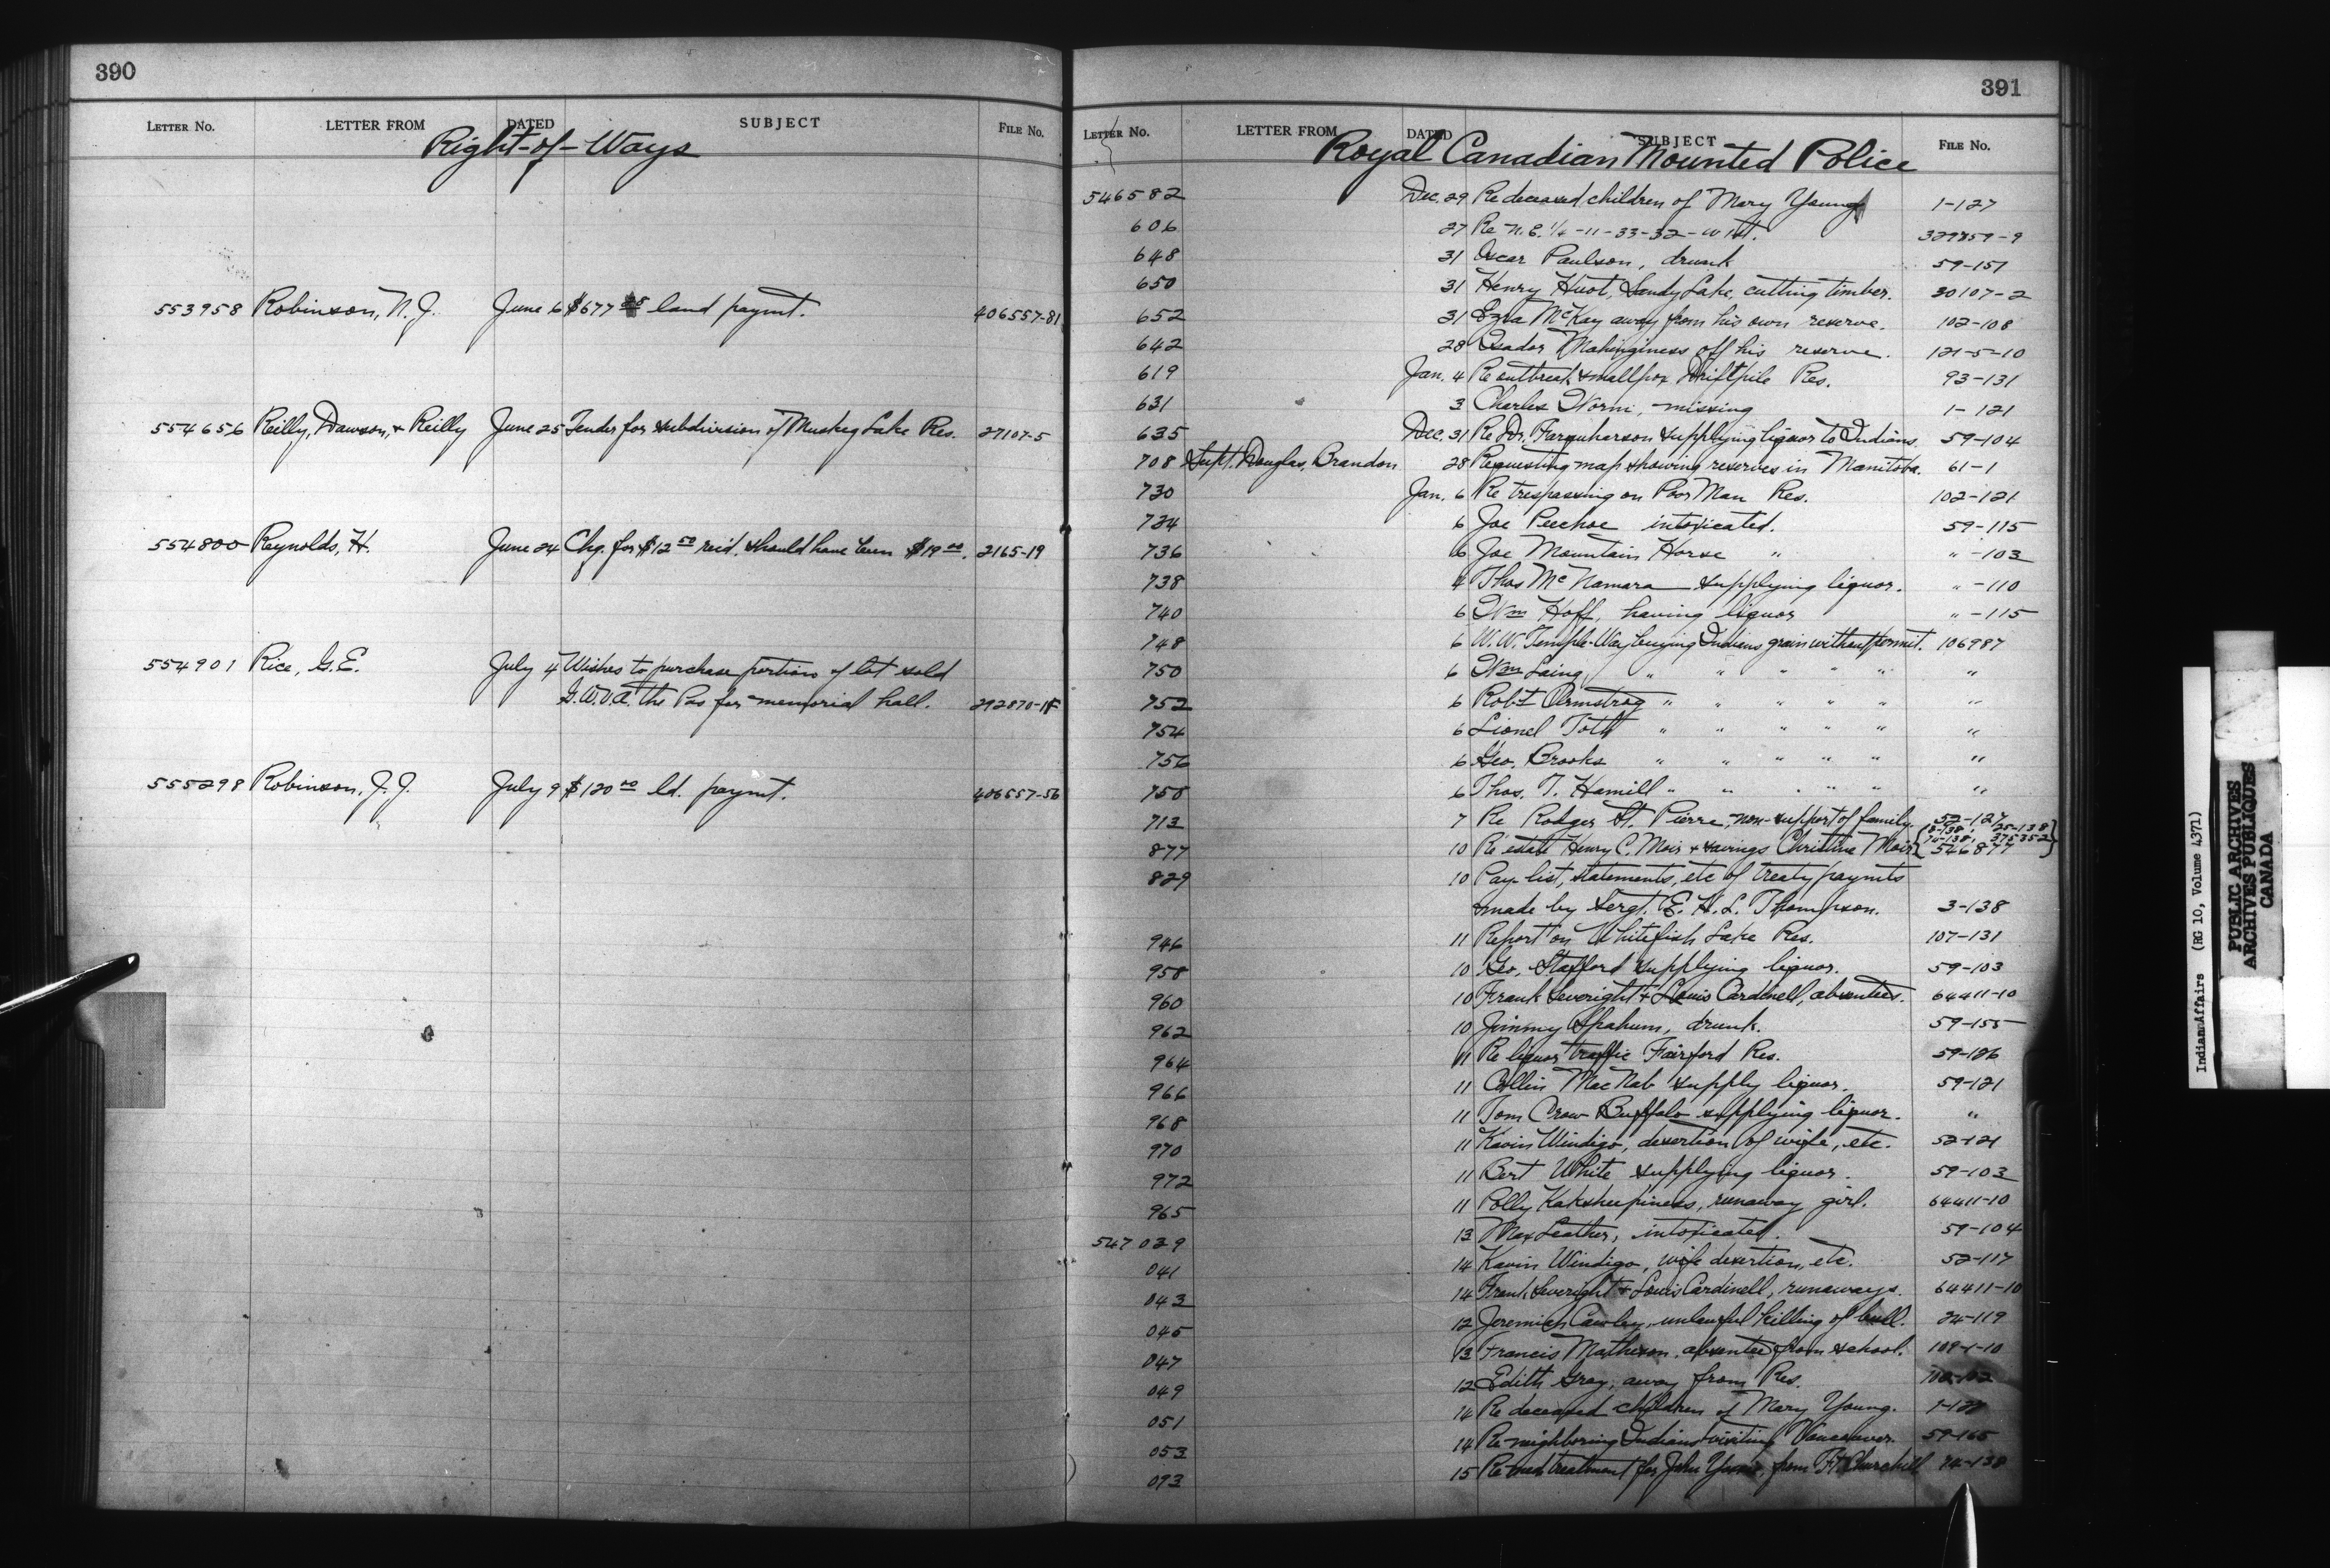 390
LETTER NO. LETTER FROM DATED SUBJECT FILE NO.
Right-of-Ways
553958 Robinson, N. J. June 6 $677 land paymt. 406557-81
554656 Reilly, Dawson, & Reilly June 25 Tender for subdivision of Muskeg Lake Res. 27107-5
554800 Reynolds, H. June 24 Chg. for $12 50 rec'd. should have been $19 00. 2165-19
554901 Rice, G.E. July 4 Wishes to purchase portion of lot sold
G.W.V.A. the Pas for memorial hall. 292870-1
555298 Robinson, J. J. July 9 $120 00 ld. paymt. 406557-56
391
LETTER NO. LETTER FROM DATED SUBJECT FILE NO.
Royal Canadian Mounted Police
546582 Dec. 29 Re deceased children of Mary Young 1-127
606 27 Re N.E. 1/4 -11-33-32-W1st. 329859-9
648 31 Oscar Paulson, drunk 59-151
650 31 Henry Huot, Sandy Lake, cutting timber. 30107-2
652 31 Ezra McKay away from his own reserve. 102-108
642 28 Isador Mahinginess off his reserve. 121-5-10
619 Jan. 4 Re outbreak smallpox Driftpile Res. 93-131
631 3 Charles Worm, missing 1-121
635 Dec. 31 Re Dr. Farquharson supplying liquor to Indians. 59-104
708 Supt. Douglas, Brandon 28 Requesting map showing reserves in Manitoba. 61-1
730 Jan. 6 Re trespassing on Poor Man Res. 102-121
734 6 Joe Peechoe intoxicated. 59-115
736 6 Joe Mountain Horse " " -103
738 4 Thos McNamara supplying liquor. " -110
740 6 Wm Hoff, having liquor " -115
748 6 W.W. Temple-Way buying Indians grain without permit. 106987
750 6 Wm Laing, " " " " "
752 6 Robt Armstrog " " " " " "
754 6 Lionel Toth " " " " " "
756 6 Geo. Brooks " " " " " "
758 6 Thos. T. Hamill " " " " " "
713 7 Re Rodger St. Pierre, non-support of family. 52-127
8-138, 25-138
877 10 Re estate Henry C. Moir & savings Christina Moir { 70-138, 375352 546877 }
829 10 Pay-list, statements, etc of treaty paymts
made by Sergt. E. H. L. Thompson. 3-138
946 11 Report on Whitefish Lake Res. 107-131
958 10 Geo. Stafford supplying liquor. 59-103
960 10 Frank Severight & Louis Cardinell, absentees. 64411-10
962 10 Jimmy Spahum, drunk. 59-155
964 11 Re liquor traffic Fairford Res. 59-126
966 11 Collin MacNab supply liquor. 59-121
968 11 Tom Crow Buffalo supplying liquor. "
970 11 Kavin Windigo, desertion of wife, etc. 52-121
972 11 Bert White supplying liquor. 59-103
965 11 Polly Kaksheepiness, runaway girl. 64411-10
547029 13 Max Leather, intoxicated. 59-104
041 14 Kavin Windigo, wife desertion, etc. 52-117
043 14 Frank Severight & Louis Cardinell, runaways. 64411-10
045 12 Jeremich Cawley, unlawful killing of bull. 24-119
047 13 Francis Matheson, absentee from school. 109-1-10
049 12 Edith Gray, away from Res.
051 14 Re deceased children of Mary Young. 1-127
053 14 Re neighboring Indians visiting Vancouver. 59-165
093 15 Re med treatment for John from Ft Churchill 74-138
Indian Affairs (RG 10, Volume 4371)
PUBLIC ARCHIVES
ARCHIVES PUBLIQUES
CANADA